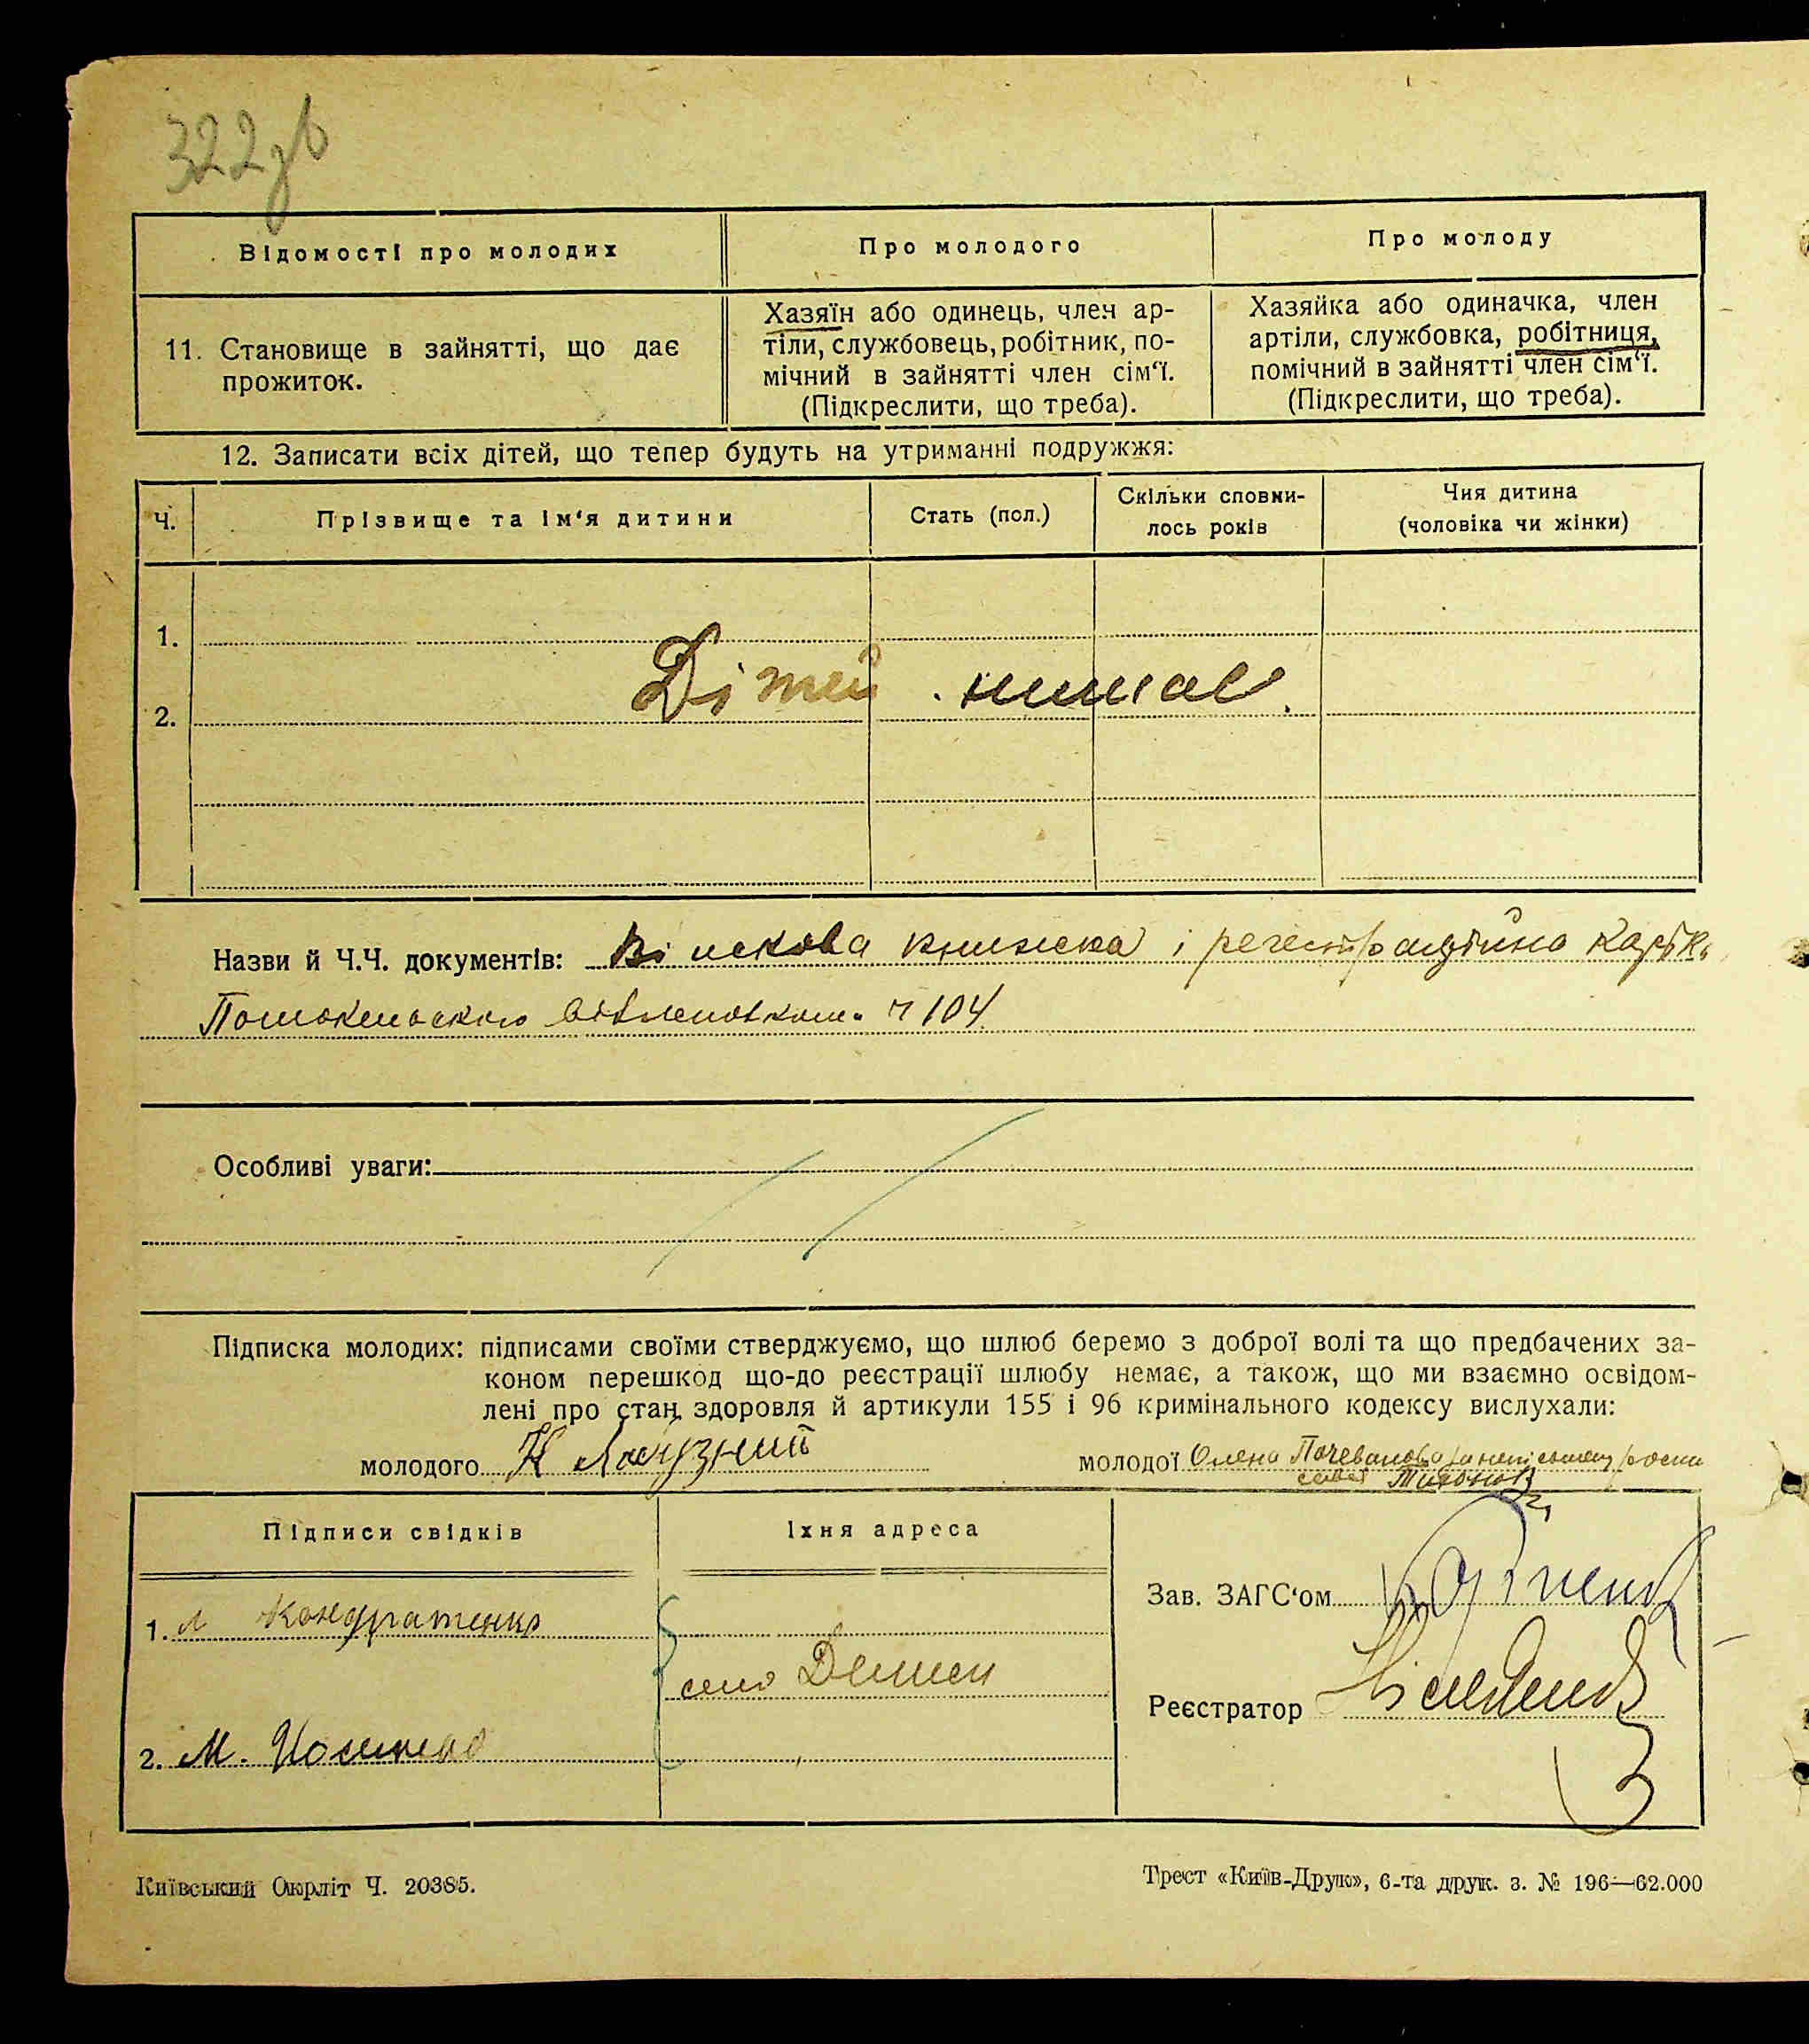 322зв
Відомості про молодих
Про молодого
Про молоду
11. Становище в зайнятті, що дає
прожиток.
Хазяїн або одинець, член ар-
тіли, службовець, робітник, по-
мічний в зайнятті член сім‘ї.
(Підкреслити, що треба).
Хазяйка або одиначка, член
артіли, службовка, робітниця,
помічний в зайнятті член сім‘ї.
(Підкреслити, що треба).
12. Записати всіх дітей, що тепер будуть на утриманні подружжя:
Ч.
Прізвище та ім‘я дитини
Стать (пол.)
Скільки сповни-
лось років
Чия дитина
(чоловіка чи жінки)
1.
Дітей немає.
2.
Назви й Ч.Ч. документів: Війскова книжка і реєстраційна картк.
ч 104
Особливі уваги:
Підписка молодих: підписами своїми стверджуємо, що шлюб беремо з доброї волі та що предбачених за-
коном перешкод що-до реєстрації шлюбу немає, а також, що ми взаємно освідом-
лені про стан здоровля й артикули 155 і 96 кримінального кодексу вислухали:
молодого К
молодої Олена
Підписи свідків
Їхня адреса
Зав. ЗАГС‘ом
1. Кондратенко
село Демен
Реєстратор
2. М.
Київський Окрліт Ч. 20385.
Трест «Київ-Друк», 6-та друк. з. № 196—62.000